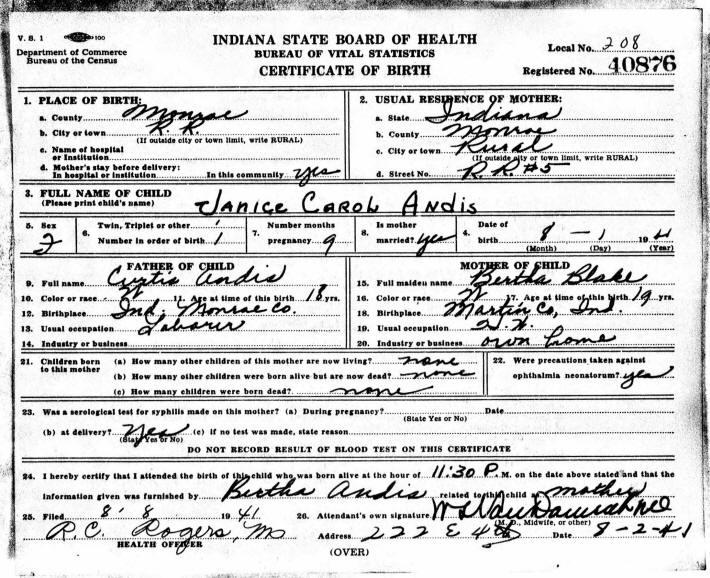 V. S. 1 100
Department of Commerce
Bureau of the Census
INDIANA STATE BOARD OF HEALTH
BUREAU OF VITAL STATISTICS
CERTIFICATE OF BIRTH
Local No. 208
Registered No. 40876
1. PLACE OF BIRTH:
a. County Monroe
b. City or town R. R.
(If outside city or town limit, write RURAL)
c. Name of hospital
or Institution
d. Mother's stay before delivery:
In hospital or institution In this community yes
2. USUAL RESIDENCE OF MOTHER:
a. State Indiana
b. County Monroe
c. City or town Rural
(If outside city or town limit, write RURAL)
d. Street No. R. R. #5
3. FULL NAME OF CHILD
(Please print child's name) JANICE CAROL ANDIS
5. Sex
6. Twin, Triplet or other 1
Number in order of birth 1
7. Number months
pregnancy 9
8. Is mother
married? yes
4. Date of
birth 8 - 1 19 41
(Month) (Day) (Year)
FATHER OF CHILD
9. Full name Curtis Andis
10. Color or race W 11. Age at time of this birth 18 yrs.
12. Birthplace Ind. Monroe Co.
13. Usual occupation Laborer
14. Industry or business
MOTHER OF CHILD
15. Full maiden name Bertha Blake
16. Color or race W 17. Age at time of this birth 19 yrs.
18. Birthplace Martin Co, Ind.
19. Usual occupation H. W.
20. Industry or business own home
21. Children born
to this mother
(a) How many other children of this mother are now living? none
(b) How many other children were born alive but are now dead? none
(c) How many children were born dead? none
22. Were precautions taken against
ophthalmia neonatorum? yes
23. Was a serological test for syphilis made on this mother? (a) During pregnancy? Date
(State Yes or No)
(b) at delivery? Yes (c) If no test was made, state reason
(State Yes or No)
DO NOT RECORD RESULT OF BLOOD TEST ON THIS CERTIFICATE
24. I hereby certify that I attended the birth of this child who was born alive at the hour of 11:30 P. M. on the date above stated and that the
information given was furnished by Bertha Andis related to the child as mother
25. Filed 8 - 8 19 41 26. Attendant's own signature
(M. D., Midwife, or other)
R. C. Rogers, M
HEALTH OFFICER
Address 222 E 4th Date 8-2-41
(OVER)